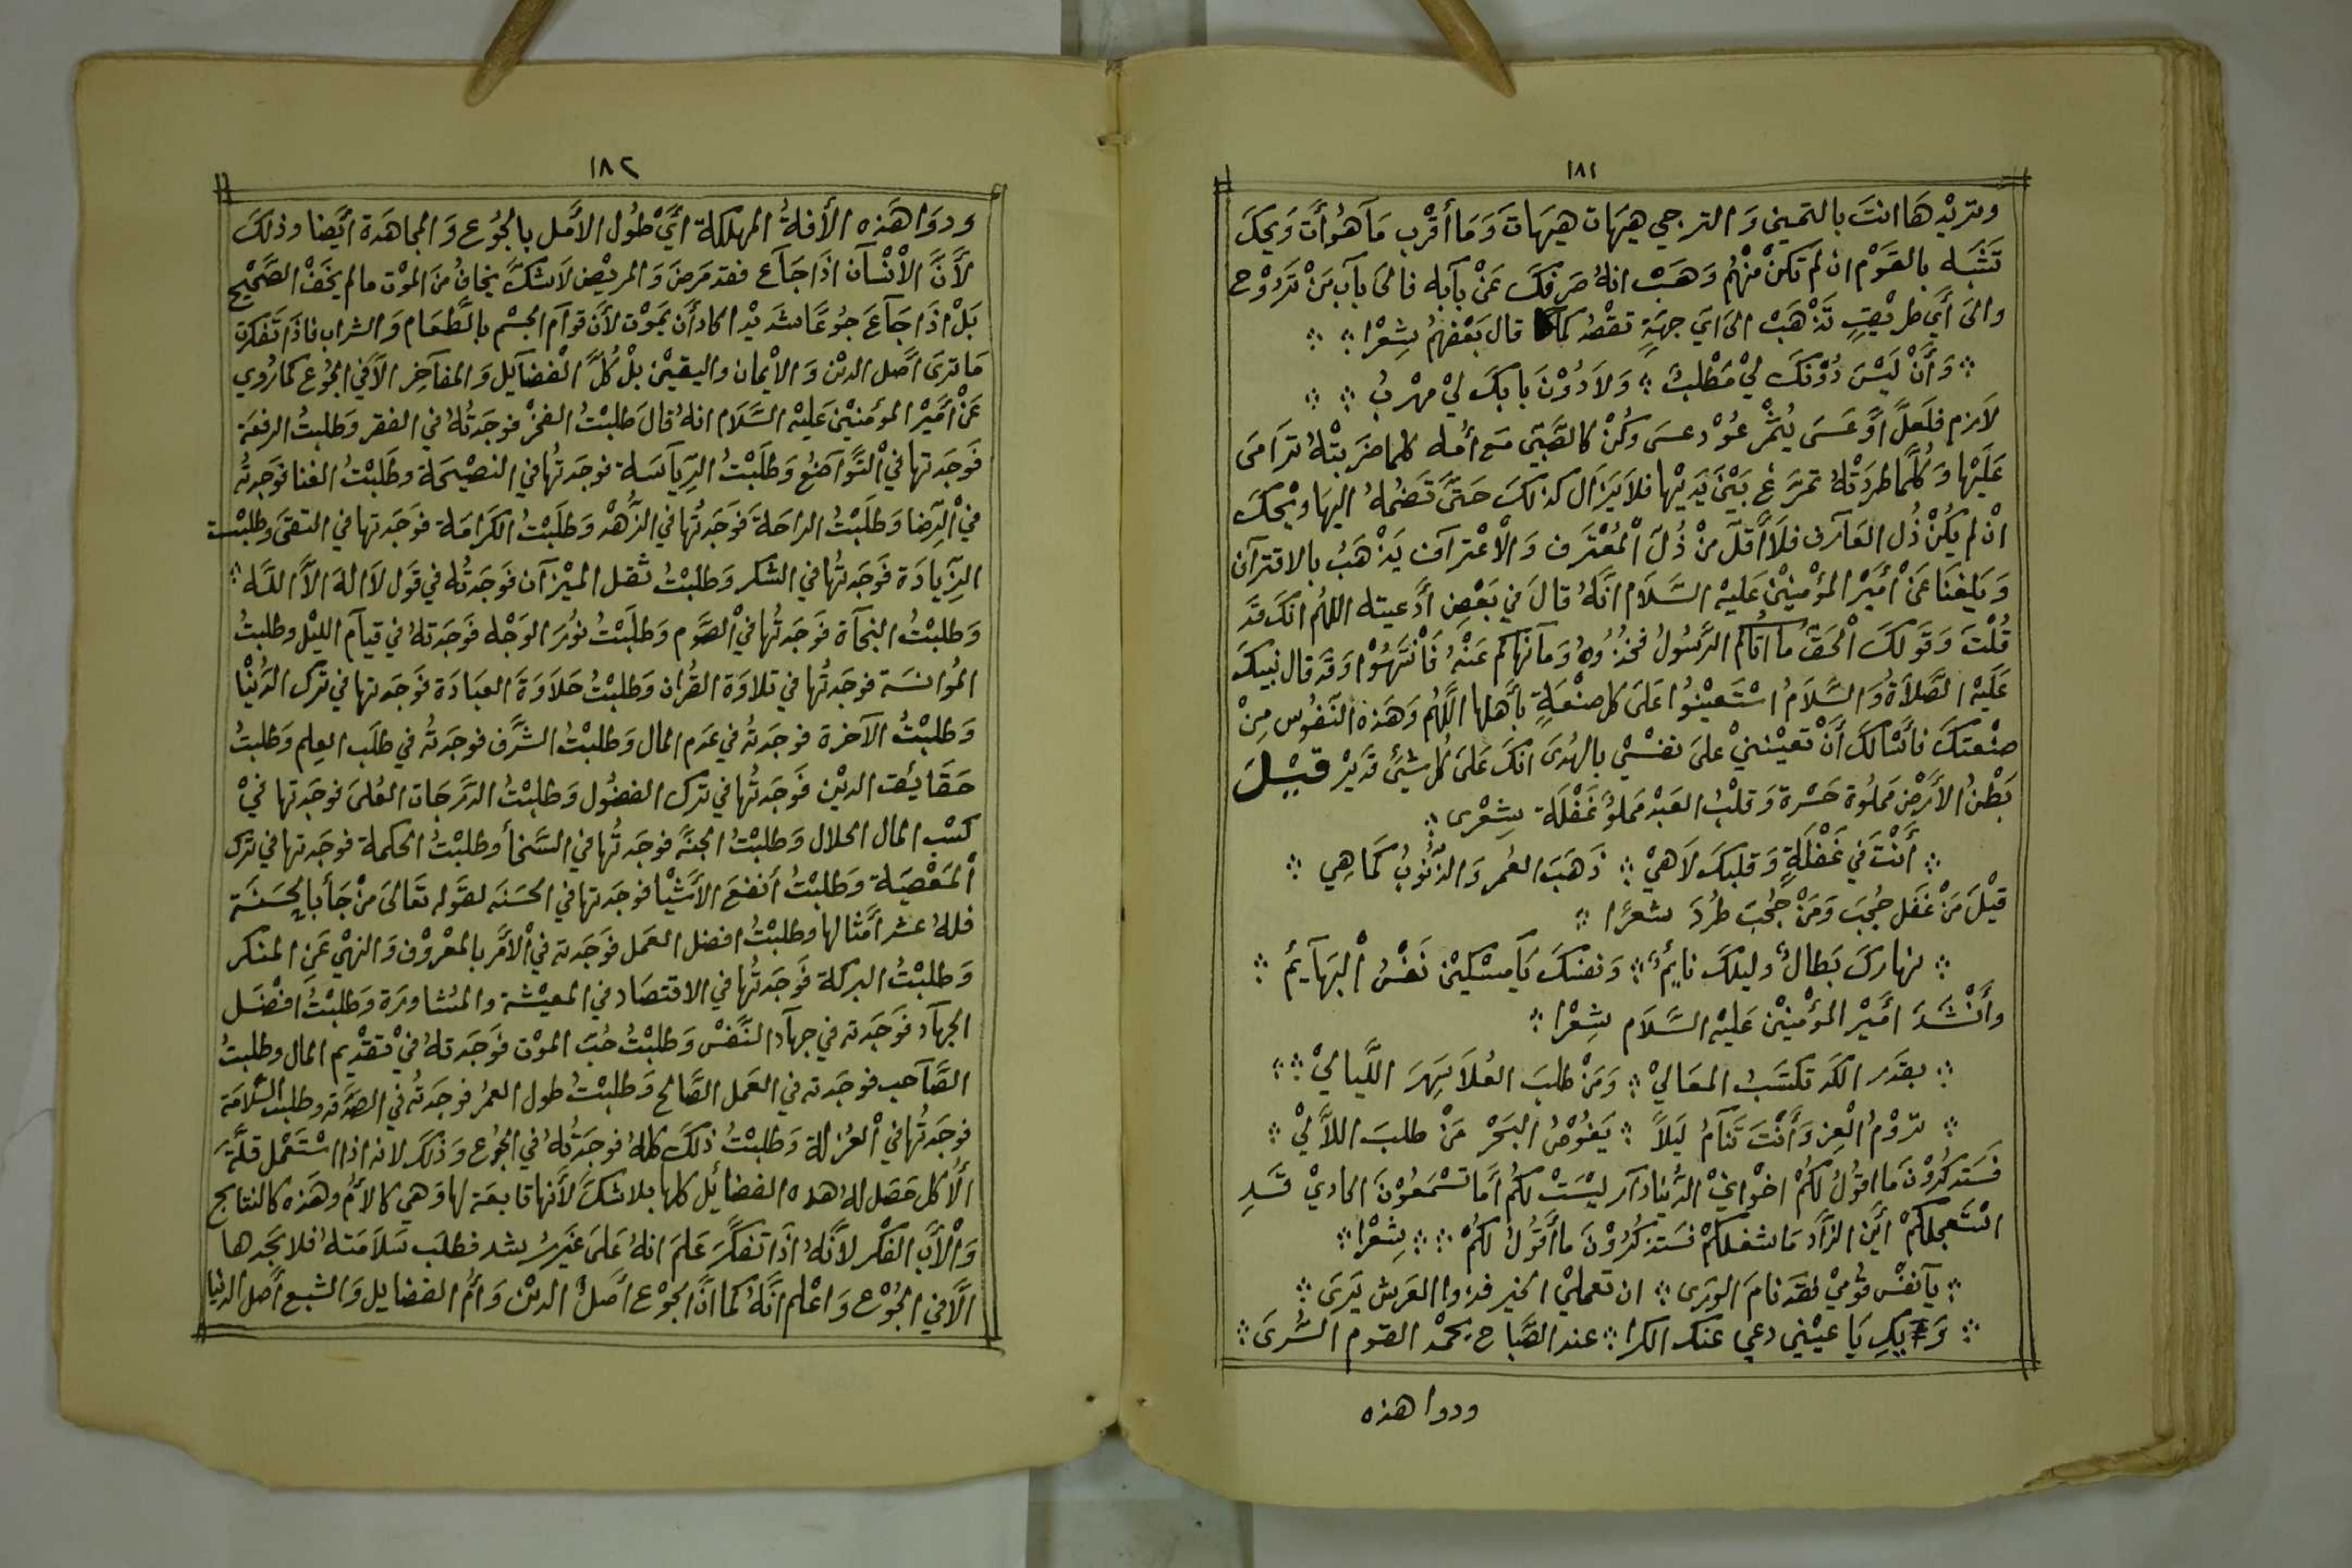 ١٨١
وتريدها انت بالتمني والترجي هيهات هيهات وما أقرب ما هو أت ويحك
تشبه بالقوم ان لم تكن منهم وهب انه صرفك عن بابه فالى باب من تروح
والى أي طريق تذهب الى اي جهة تقصد كما قال بعضهم شعرا
وأن ليس دونك لي مطلب ولا دون بابك لي مهرب
لازم فلعل أو عسى يثمر عود عسى وكن كالصبي مع أمه كلما ضربته ترامى
عليها وكلما طردته تمرغ بين يديها فلا يزال كذلك حتى تضمه اليها ويحك
ان لم يكن ذل العارف فلا أقل من ذل المعترف والاعتراف يذهب بالاقتران
وبلغنا عن أمير المؤمنين عليه السلام انه قال في بعض أدعيته اللهم انك قد
قلت وقولك الحق ما اتاكم الرسول فخذوه وما نهاكم عنه فانتهوا وقد قال نبيك
عليه الصلاة والسلام استعينوا على كل صنعة بأهلها اللهم وهذه النفوس من
صنعتك فأسألك أن تعينني على نفسي بالهدى انك على كل شئ قدير قيل
بطن الأرض مملوة حسرة وقلب العبد مملؤ غفلة شعرى
أنت في غفلة وقلبك لاهي ذهب العمر والذنوب كما هي
قيل من غفل حجب ومن حجب طرد شعرا
نهارك بطال وليلك نايم ونفسك يا مسكين نفس البهايم
وأنشد أمير المؤمنين عليه السلام شعرا
بقدر الكد تكتسب المعالي ومن طلب العلا سهر الليالي
تروم العز وأنت تنام ليلا يغوص البحر من طلب اللألي
فستذكرون ما اقول لكم اخواني الدنيا دار ليست لكم أما تسمعون الحادي قد
استعجلكم أين الزاد ما شغلكم فستذكرون ما أقول لكم شعرا
يا نفس قومي فقد نام الورى ان تعملي الخير فذو العرش يرى
يا عيني دعي عنك الكرا عند الصباح يحمد القوم السرى
ودوا هذه
١٨٢
ودوا هذه الأفة المهلكة أي طول الأمل بالجوع والمجاهدة ايضا وذلك
لأن الانسان اذا جاع فقد مرض والمريض لاشك يخاف من الموت ما لم يخف الصحيح
بل اذا جاع جوعا شديدا كاد أن يموت لأن قوام الجسم بالطعام والشراب فاذا تفكرت
ما ترى أصل الدين والايمان واليقين بل كل الفضايل والمفاخر الا في الجوع كما روي
عن أمير المؤمنين عليه السلام انه قال طلبت الفخر فوجدته في الفقر وطلبت الرفعة
فوجدتها في التواضع وطلبت الرياسة فوجدتها في النصيحة وطلبت الغنا فوجدته
في الرضا وطلبت الراحة فوجدتها في الزهد وطلبت الكرامة فوجدتها في التقى وطلبت
الزيادة فوجدتها في الشكر وطلبت ثقل الميزان فوجدته في قول لا اله الا الله
وطلبت النجاة فوجدتها في الصوم وطلبت نور الوجه فوجدته في قيام الليل وطلبت
الموانسة فوجدتها في تلاوة القران وطلبت حلاوة العبادة فوجدتها في ترك الدنيا
وطلبت الآخرة فوجدته في عدم المال وطلبت الشرف فوجدته في طلب العلم وطلبت
حقائق الدين فوجدتها في ترك الفضول وطلبت الدرجات العلى فوجدتها في
كسب المال الحلال وطلبت الجنة فوجدتها في السخأ وطلبت الحكمة فوجدتها في ترك
المعصية وطلبت أنفع الأشيا فوجدتها في الحسنه لقوله تعالى من جأ بالحسنة
فله عشر أمثالها وطلبت افضل العمل فوجدته في الامر بالمعروف والنهي عن المنكر
وطلبت البركة فوجدتها في الاقتصاد في المعيشة والمشاورة وطلبت افضل
الجهاد فوجدته في جهاد النفس وطلبت حب الموت فوجدته في تقديم المال وطلبت
الصاحب فوجدته في العمل الصالح وطلبت طول العمر فوجدته في الصدقه وطلبت السلامة
فوجدتها في العزلة وطلبت ذلك كله فوجدته في الجوع وذلك لانه اذا استعمل قلة
الأكل حصل له هذه الفضائل كلها بلاشك لأنها تابعة لها وهي كالأم وهذه كالنتايج
والأب الفكر لأنه اذا تفكر علم انه على غير رشد فطلب سلامته فلا يجدها
الا في الجوع واعلم انه كما ان الجوع أصل الدين وأم الفضايل والشبع أصل الدنيا